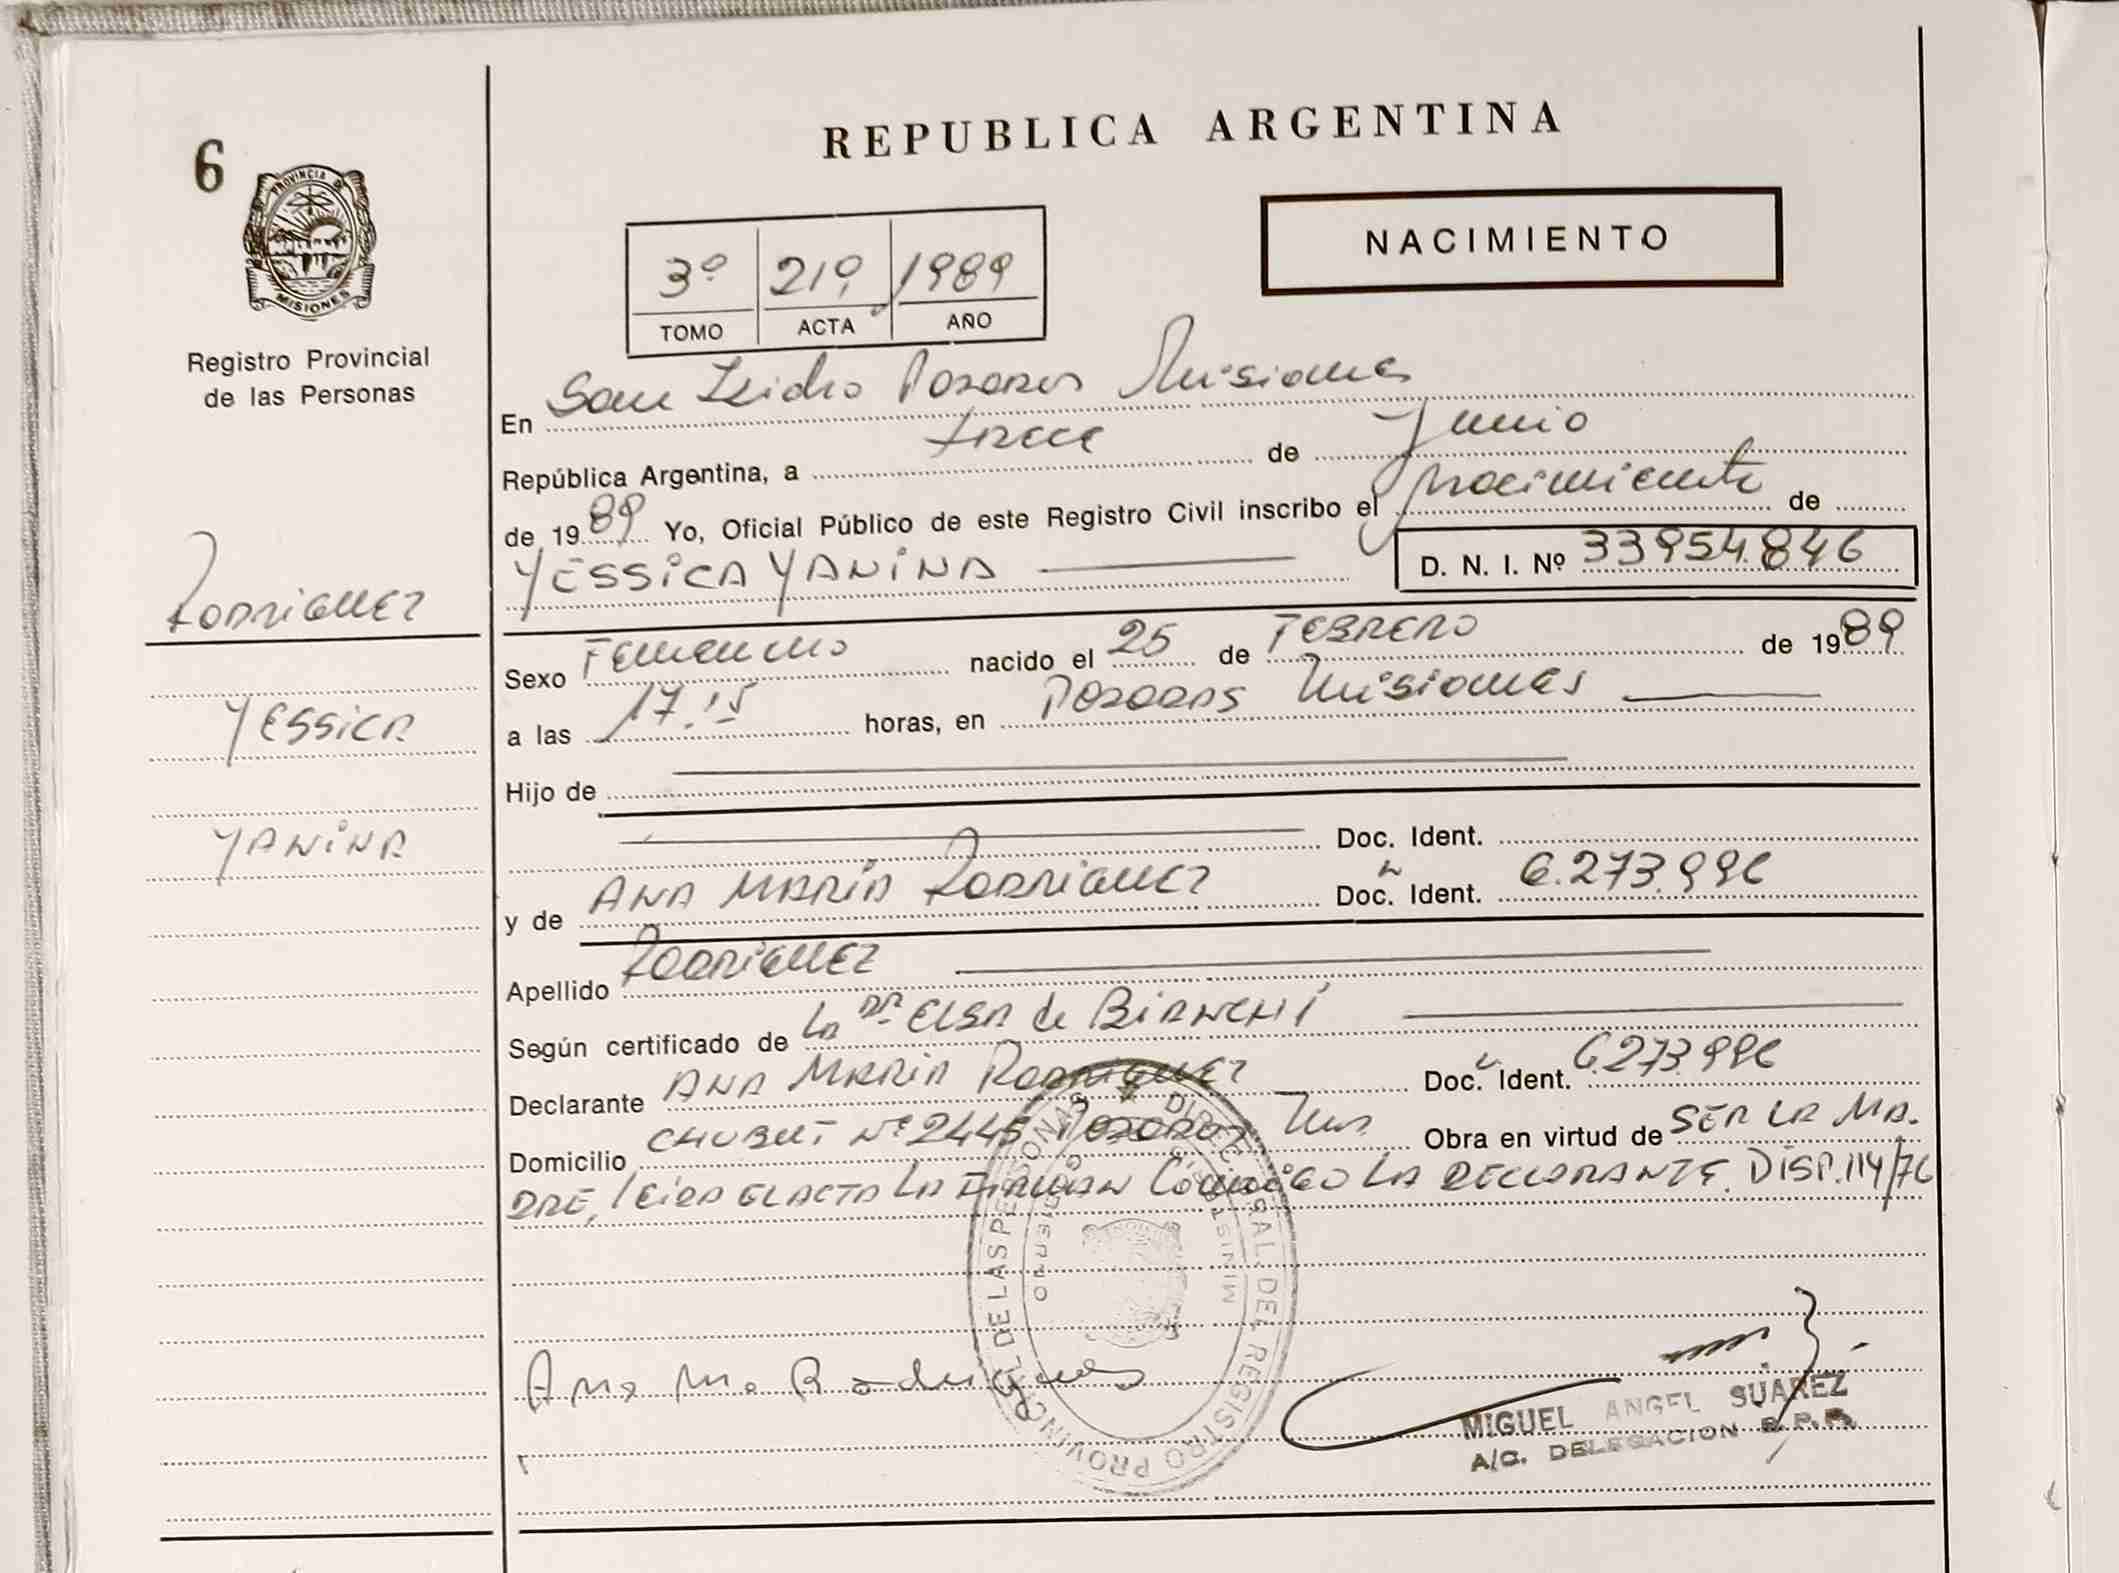 6
PROVINCIA DE
MISIONES
Registro Provincial
de las Personas
RODRIGUEZ
YESSICA
YANINA
REPUBLICA ARGENTINA
NACIMIENTO
3º 219 1989
TOMO ACTA AÑO
En San Isidro Posadas Misiones
República Argentina, a trece de Junio
de 1989 Yo, Oficial Público de este Registro Civil inscribo el nacimiento de
YESSICA YANINA D. N. I. Nº 33954.846
Sexo Femenino nacido el 25 de FEBRERO de 1989
a las 17.15 horas, en POSADAS Misiones
Hijo de
Doc. Ident.
y de ANA MARIA RODRIGUEZ Doc. Ident. 6.273.996
Apellido RODRIGUEZ
Según certificado de LA DRA ELSA de BIANCHI
Declarante ANA MARIA RODRIGUEZ Doc. Ident. 6.273.996
Domicilio CHUBUT Nº 2445 POSADAS Mns Obra en virtud de SER LA MA-
DRE, leida EL ACTA LA FIRMAN Conmigo LA DECLARANTE. DISP. 114/76
DIREC. GRAL DEL REGISTRO PROVINCIAL DE LAS PERSONAS
Ana Ma Rodriguez
MIGUEL ANGEL SUAREZ
A/C. DELEGACION R.P.P.